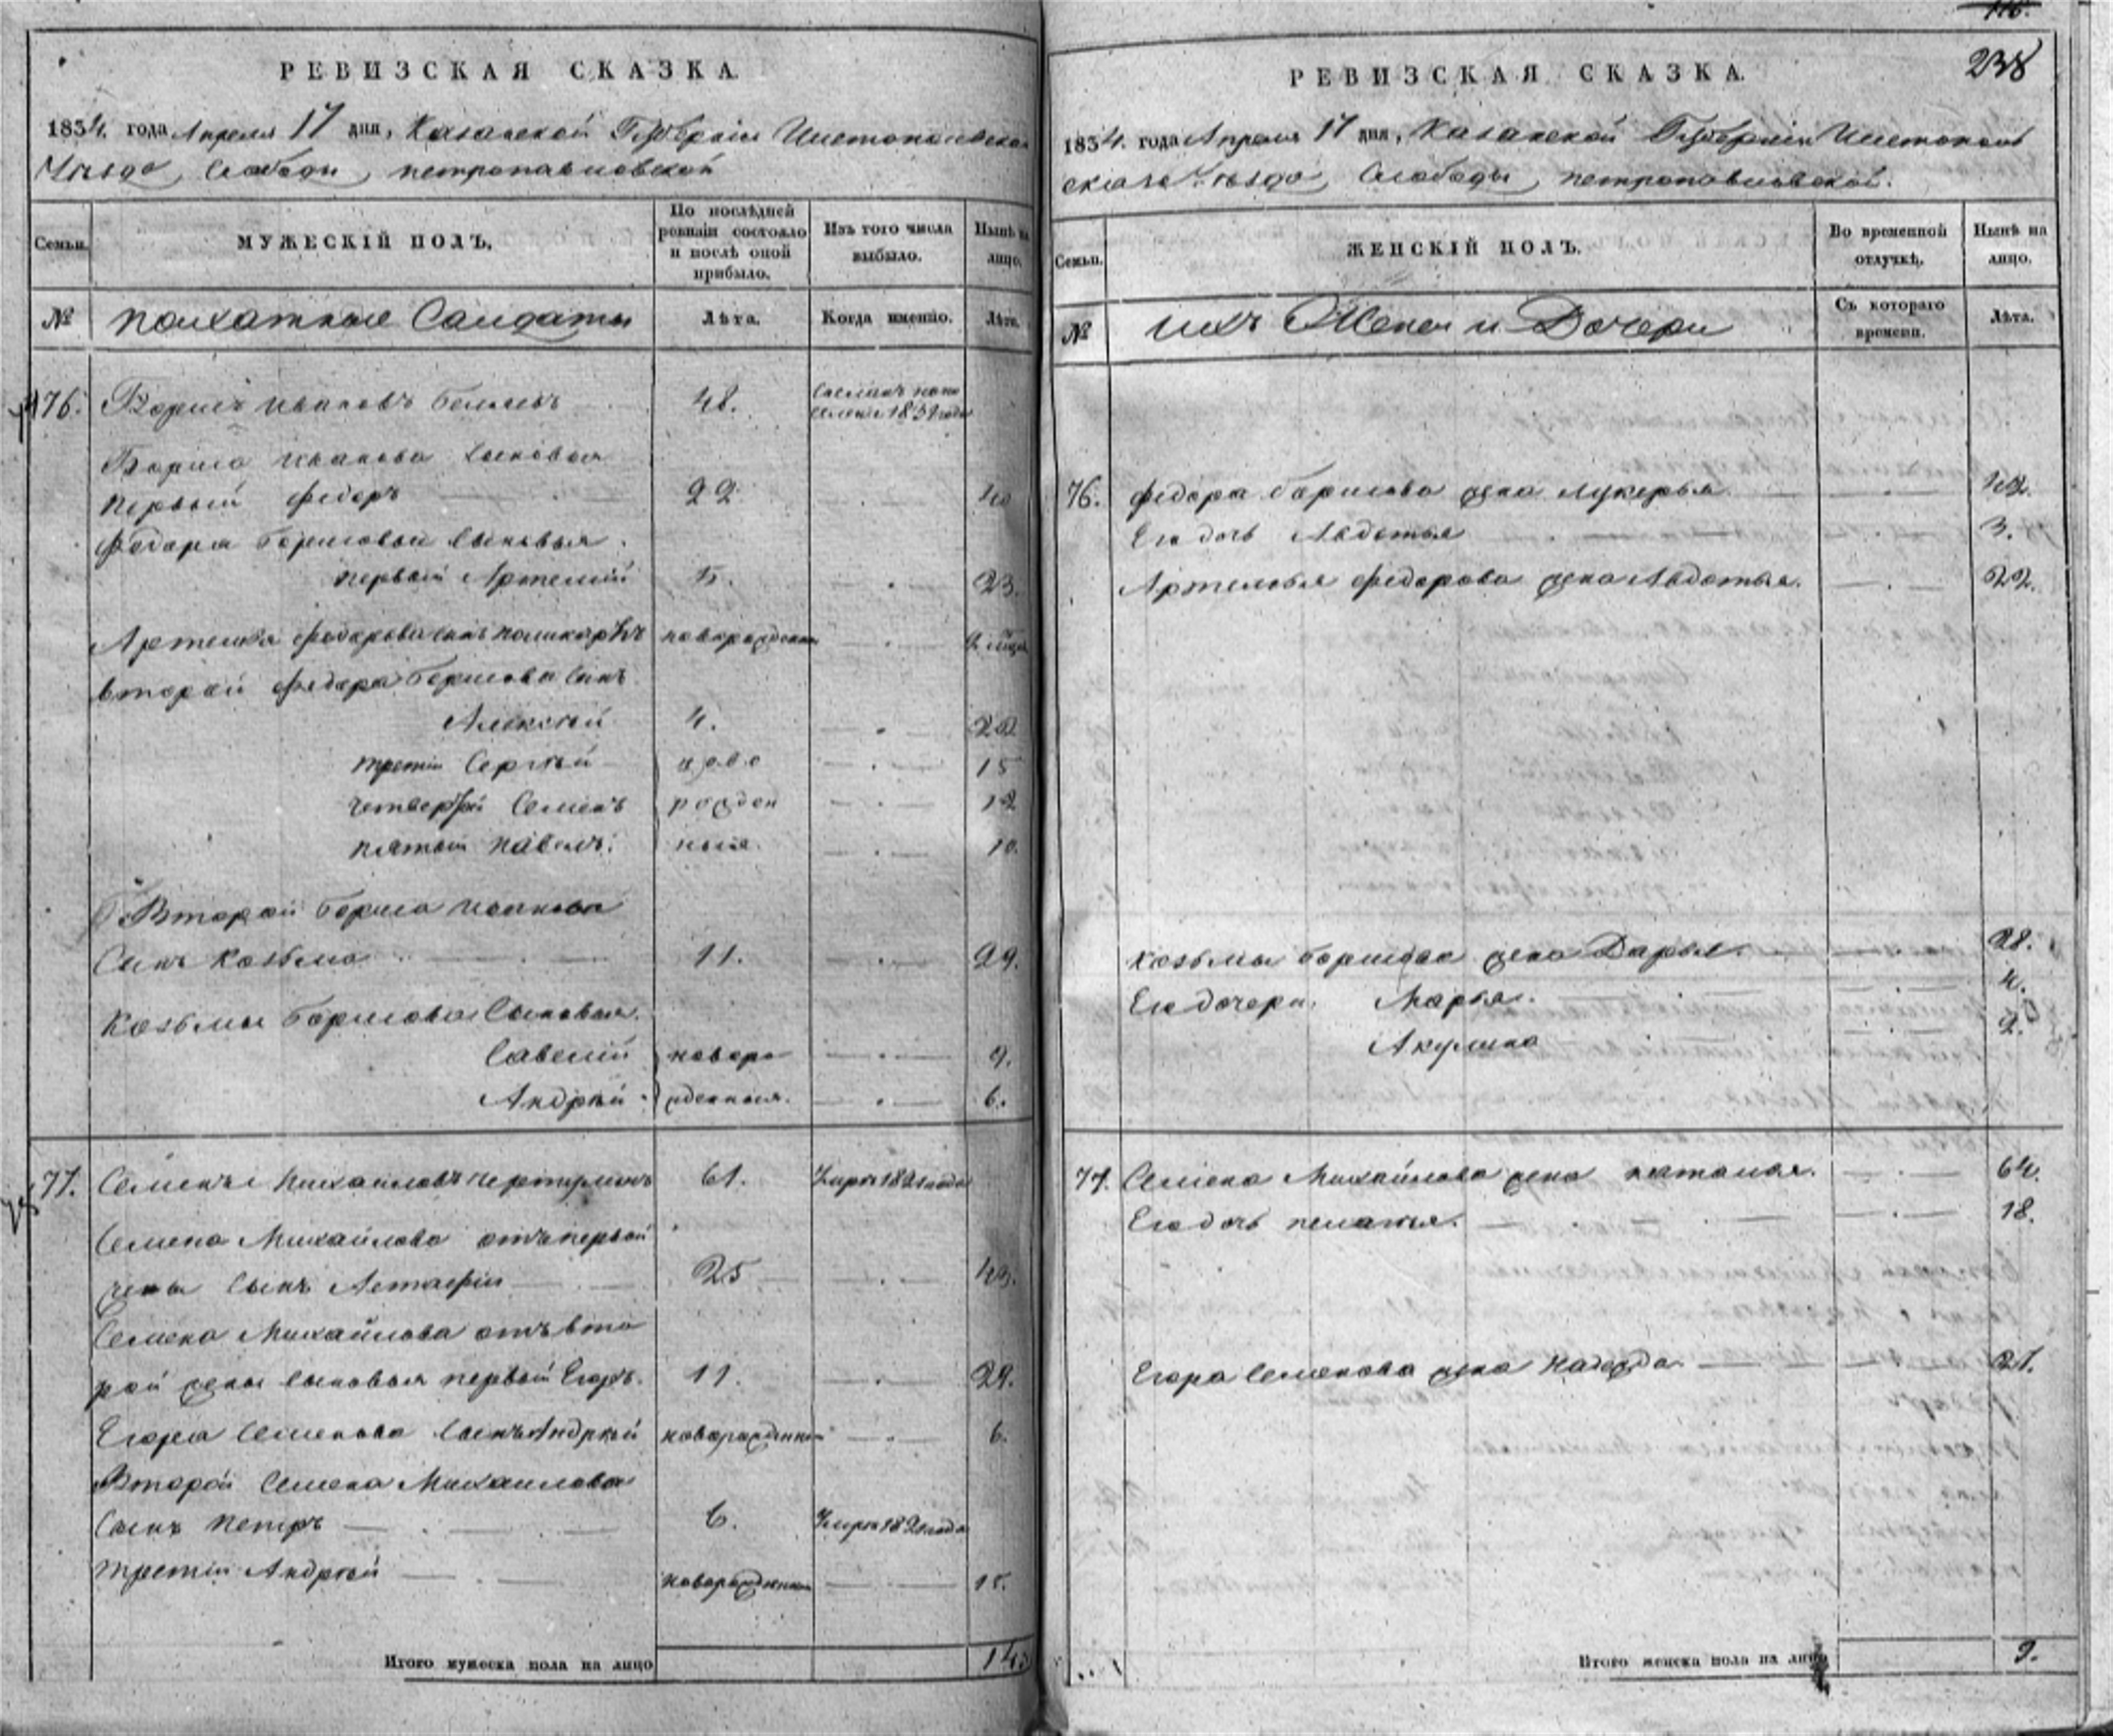 РЕВИЗСКАЯ СКАЗКА.
1834. года Апреля 17 дня, Казанской Губернiи Чистопольскаго
Уѣзда, Слободы петропавловской
Семьи.
МУЖЕСКIЙ ПОЛЪ.
По послѣдней ревизiи состояло и послѣ оной прибыло.
Изъ того числа выбыло.
Нынѣ на лицо.
№
пахатные Солдаты
Лѣта.
Когда именно.
Лѣта.
176. Борисъ Ивановъ 48. Сосланъ на по
селенiе 1831 года
Бориса Иванова Сыновья
первый Федоръ 22 40
Федора Борисова Сыновья
первый Артемiй 5. 23.
Артемья Федорова Сынъ новорожденный 2
второй Федора Борисова Сынъ
Алексѣй 4. 22
третiй Сергѣй ново 15
четвертый Семенъ рожден 12
пятый Павелъ. ныя. 10.
Второй Бориса Иванова
Сынъ Козьма 11. 29.
Козьмы Борисова Сыновья.
Савелiй новоро 9.
Андрѣй жденныя. 6.
77. Семенъ Михайловъ 61. Умеръ 1821 года
Семена Михайлова отъ первой
жены Сынъ Астафiй 25 43.
Семена Михайлова отъ вто
рой жены Сыновья первый Егоръ. 11. 29.
Егора Семенова Сынъ Андрѣй новорожденный 6.
Второй Семена Михайлова
Сынъ Петръ 6. Умеръ 1821 года
третiй Андрѣй новорожденный 15.
Итого мужеска пола на лицо 14.
116.
238
РЕВИЗСКАЯ СКАЗКА.
1834. года Апреля 17 дня, Казанской Губернiи Чистополь
скаго Уѣзда, Слободы петропавловской.
Семьи.
ЖЕНСКIЙ ПОЛЪ.
Во временной отлучкѣ.
Нынѣ на лицо.
№
ихъ Жены и Дочери
Съ котораго времени.
Лѣта.
76. Федора Борисова жена Лукерья 42.
Его дочь Авдотья 3.
Артемья Федорова жена Авдотья. 22.
Козьмы Борисова жена Дарья. 28.
Его дочери. Марья. 4.
Акулина 2.
77. Семена Михайлова жена наталья. 64.
Его дочь пелагья. 18.
Егора Семенова жена Надежда 27.
Итого женска пола на лицо 9.